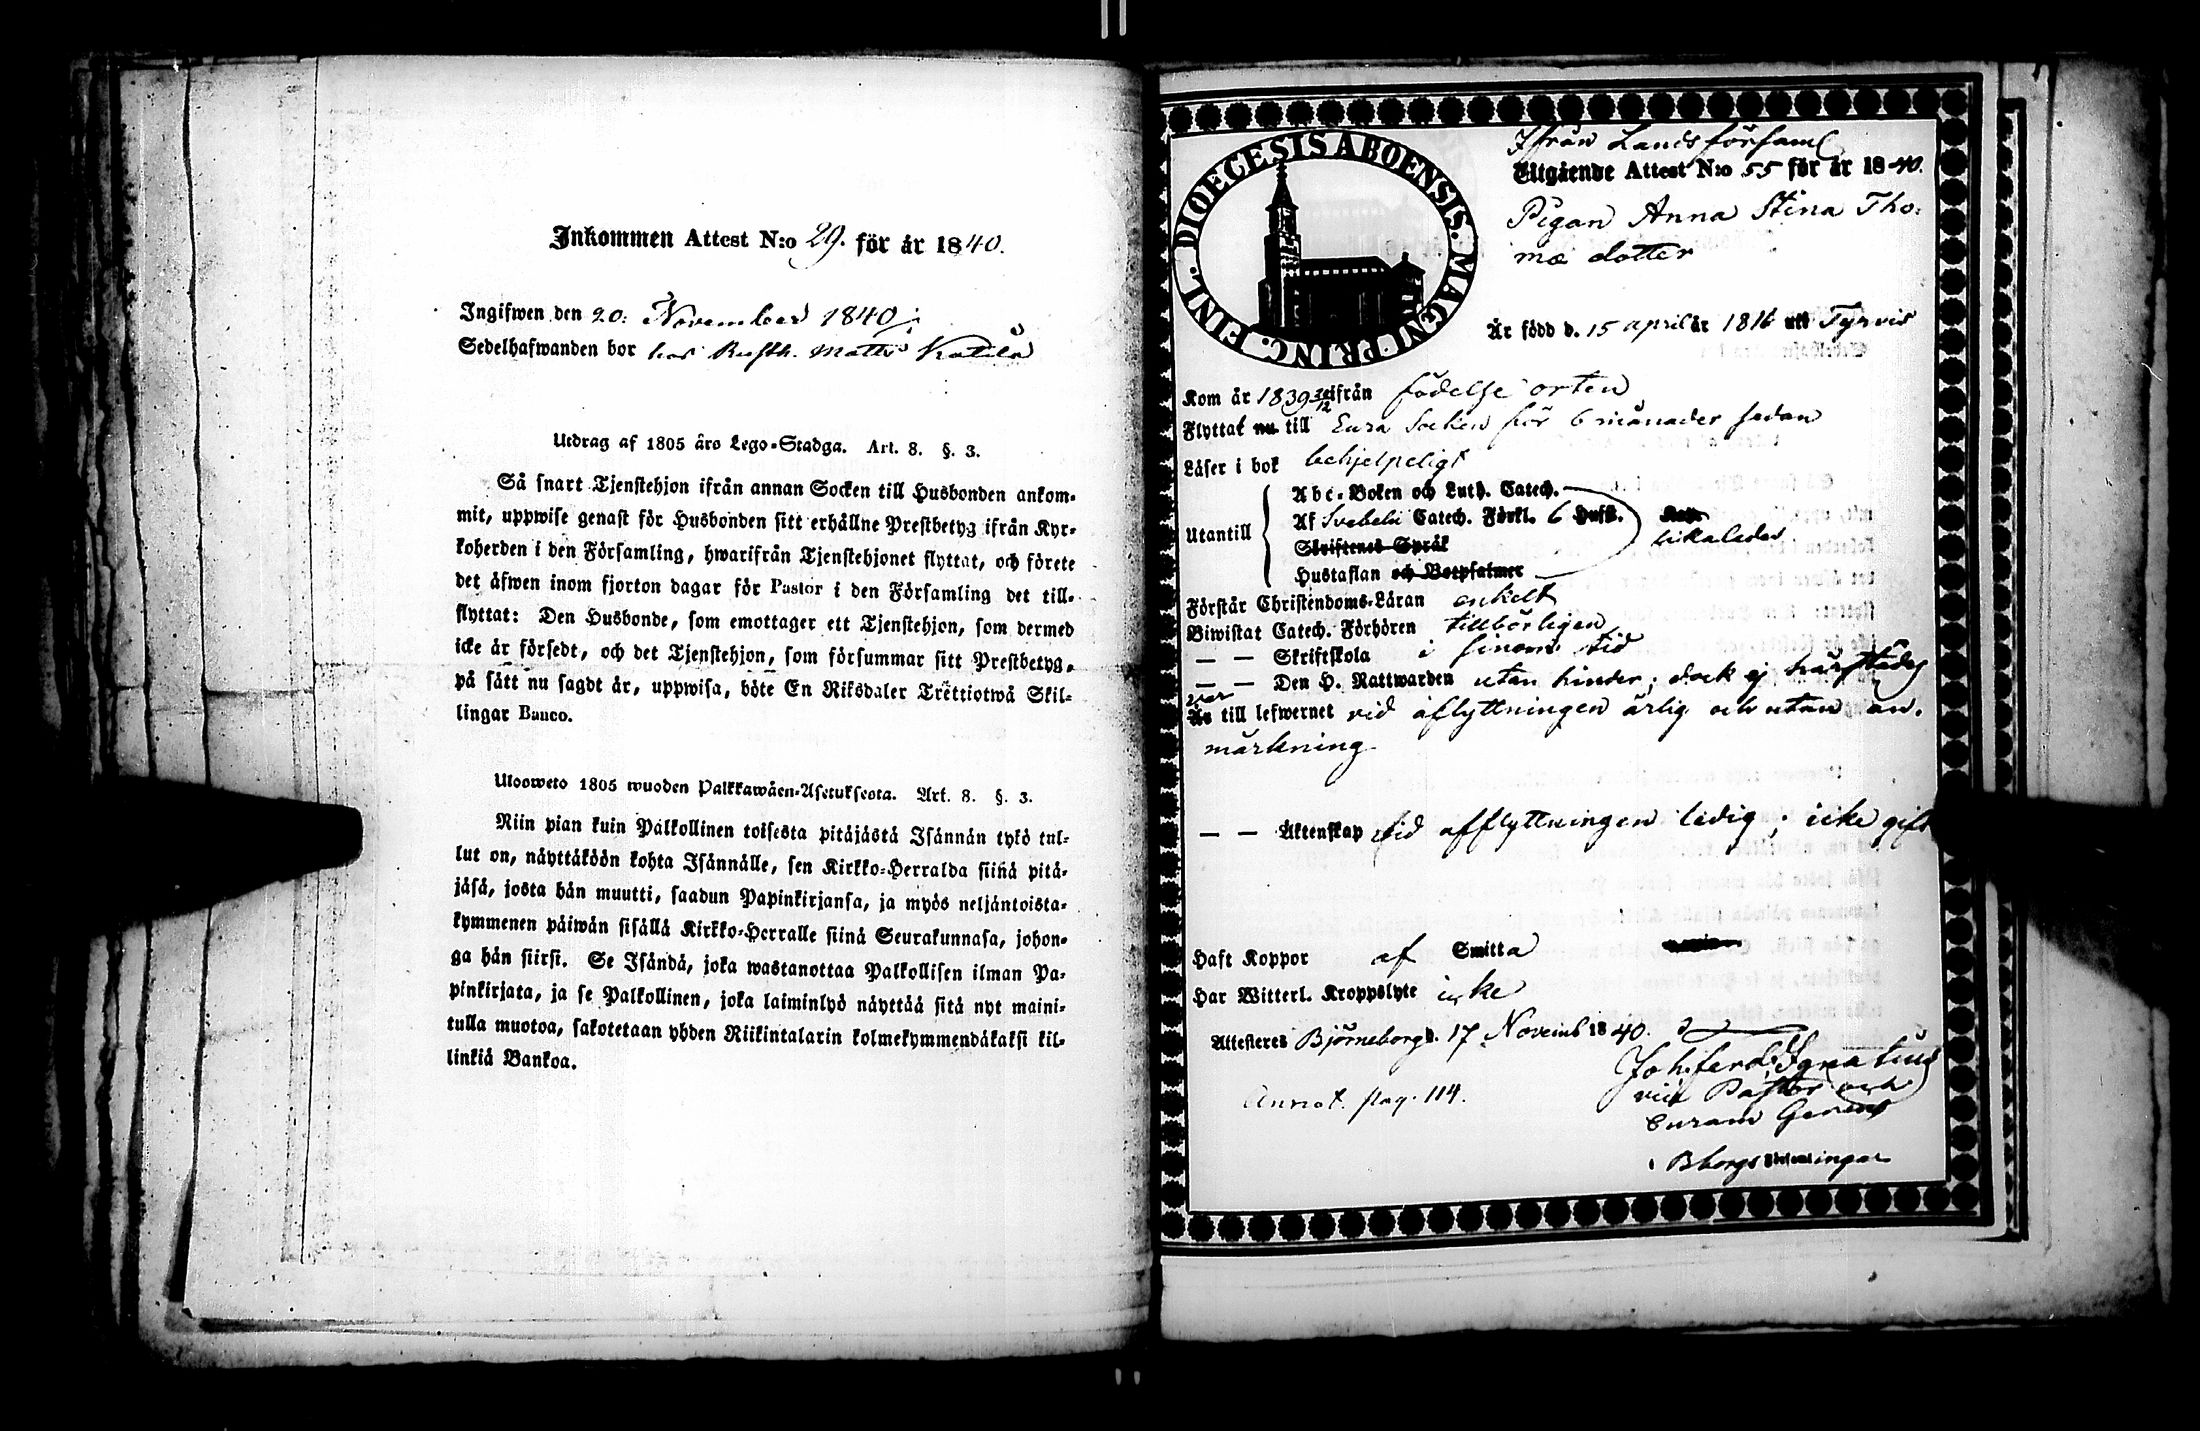 Inkommen Attest N:o 29. för år 1840.
Ingifwen den 20: November 1840
Sedelhafwanden bor hos Rusth. Matts Katila
Utdrag af 1805 års Lego-Stadga. Art. 8. §. 3.
Så snart Tjenstehjon ifrån annan Socken till Husbonden ankom-
mit, uppwise genast för Husbonden sitt erhållne Prestbetyg ifrån Kyr-
koherden i den Församling, hwarifrån Tjenstehjonet flyttat, och förete
det äfwen inom fjorton dagar för Pastor i den Församling det till-
flyttat: Den Husbonde, som emottager ett Tjenstehjon, som dermed
icke är försedt, och det Tjenstehjon, som försummar sitt Prestbetyg,
på sätt nu sagdt är, uppwisa, böte En Riksdaler Trettiotwå Skil-
lingar Banco.
Ulosweto 1805 wuoden Palkkawäen-Asetuksesta. Art. 8. §. 3.
Niin pian kuin Palkollinen toisesta pitäjästä Isännän tykö tul-
lut on, näyttäköön kohta Isännälle, sen Kirkko-Herralda siinä pitä-
jäsä, josta hän muutti, saadun Papinkirjansa, ja myös neljäntoista-
kymmenen päiwän sisällä Kirkko-Herralle siinä Seurakunnasa, johon-
ga hän siirsi. Se Isändä, joka wastanottaa Palkollisen ilman Pa-
pinkirjata, ja se Palkollinen, joka laiminlyö näyttää sitä nyt maini-
tulla muotoa, sakotetaan yhden Riikintalarin kolmekymmendäkaksi kil-
linkiä Bankoa.
DIOECESIS ABOENSIS. MAGNI PRINC. FINL.
Ifrån Landsförsaml
Utgående Attest N:o 55 för år 1840.
Pigan Anna Stina Tho-
mæ dotter
Är född d. 15 april år 1816 uti Tyrvis
Kom år 1839 ifrån födelse orten
Flyttat nu till Eura Socken för 6 månader sedan
Läser i bok behjelpeligt
Utantill
Abc-Boken och Luth. Catech.
Af Svebelii Catech. Förkl. 6 Hufst.
Skriftenes Språk
Hustaflan och Botpsalmer
likaledes
Förstår Christendoms-Läran enkelt
Biwistat Catech. Förhören tillbörligen
— — Skriftskola i sinom tid
— — Den H. Nattwarden utan hinder; dock ej härstädes
var
Är till lefwernet vid aflyttningen ärlig och utan an-
märkning
— — Äktenskap vid afflyttningen ledig, icke gift
Haft Koppor af Smitta
Har Witterl. Kroppslyte icke
Attesteres Björneborg d. 17 Novemb 1840.
Joh. Ferd. Ignatius
vice Pastor och
Curam Gerens
i Bborgs Församlingar
Annot. pag. 114.